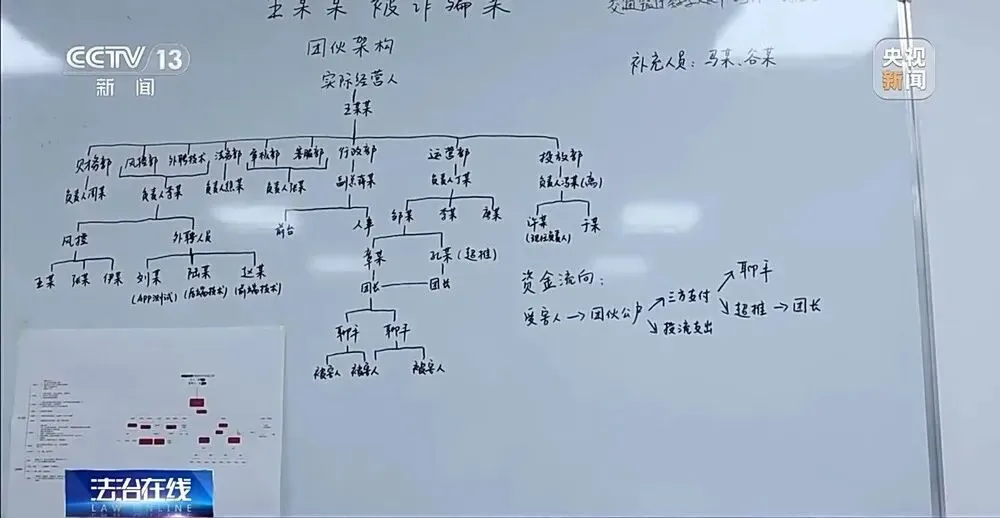 王某某被诈骗案
CCTV 13
新闻
央视
新闻
团伙架构
补充人员：马某、谷某
实际经营人
王某某
财务部 风控部 外聘技术 法务部 审核部 客服部 行政部 运营部 投放部
负责人周某 负责人李某 负责人熊某 负责人张某 副总薛某 负责人丁某 负责人冯某(离)
前台 人事 邹某 李某 唐某 许某 于某
(现任负责人)
风控 外聘人员 章某 孔某(超推)
王某 张某 伊某 刘某 陆某 赵某 团长 团长
(APP测试) (后端技术) (前端技术)
聊手 聊手
被害人 被害人 被害人
资金流向：
聊手
受害人→团伙公户 三方支付 超推→团长
投流支出
法治在线
LAW ONLINE